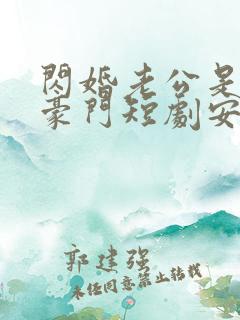 閃婚老公是
豪門短劇安
郭建強
未经同意禁止转载